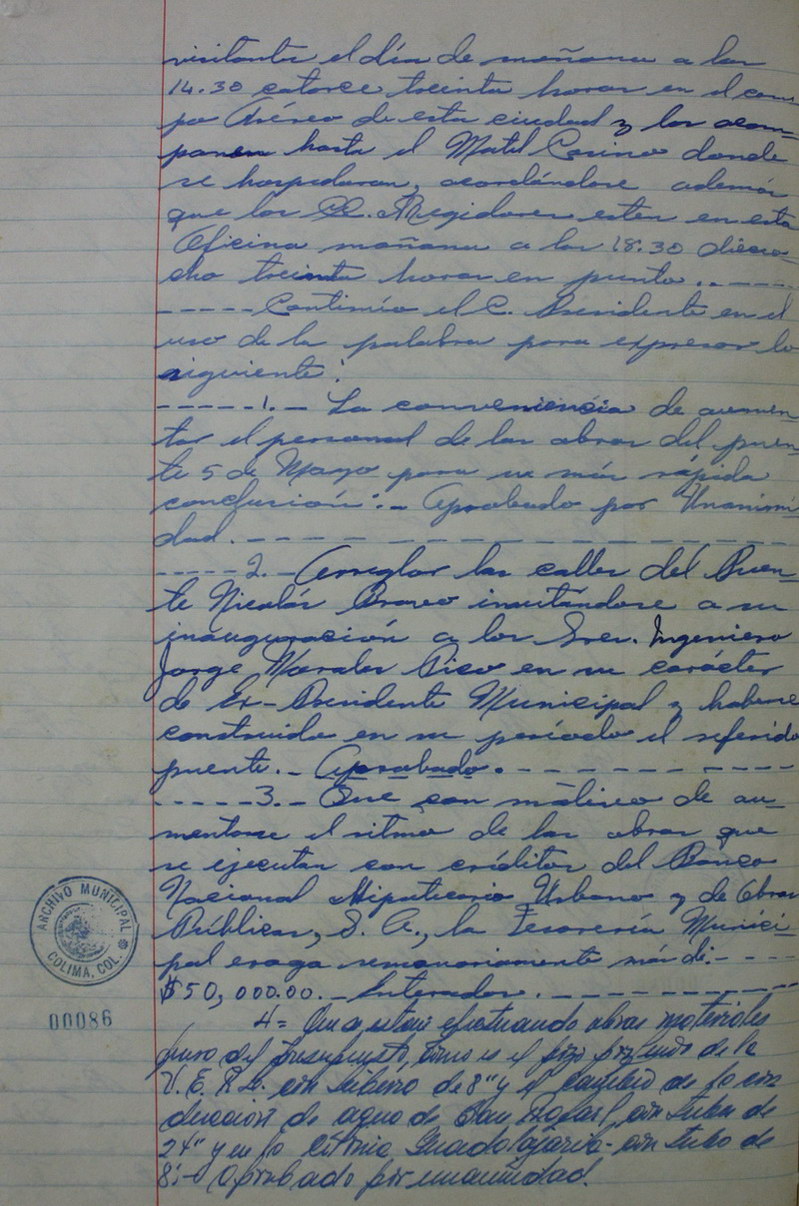 visitantes el día de mañana a las
14.30 catorce treinta horas en el cam-
po Aéreo de esta ciudad y los acom-
pañen hasta el Motel Casino donde
se hospedaran, acordándose además
que los CC. Regidores esten en esta
Oficina mañana a las 18.30 diecio-
cho treinta horas en punto. . - - - -
- - - - - Continúo el C. Presidente en el
uso de la palabra para expresar lo
siguiente:
- - - - - 1. - La conveniencia de aumen-
tar el personal de las obras del puen-
te 5 de Mayo para su más rápida
conclusión: - Aprobado por Unanimi-
dad. - - - - - - - - - - - - - -
- - - - - 2. - Arreglar las calles del Puen-
te Nicolás Bravo invitándose a su
inauguración a los Sres. Ingeniero
Jorge Morales Pico en su carácter
de Ex-Presidente Municipal y haberse
construido en su período el referido
puente. - Aprobado. - - - - - - - - -
- - - - - 3. - Que con motivo de au-
mentarse el ritmo de las obras que
se ejecutan con créditos del Banco
Nacional Hipotecario Urbano y de Obras
Públicas, S. A., la Tesorería Munici-
pal eroga semanariamente más de: - - - -
$50,000.00. - Enterados. - - - - - - - -
4 = Que estan efectuando obras materiales
fuera del Presupuesto, como es el pozo profundo de la
de 8" y el cambio de la con
ducción de agua de San Rafael con tubo de
24" y en la Colonia Guadalajara con tubo de
8: - Aprobado por unanimidad.
ARCHIVO MUNICIPAL
COLIMA, COL.
00086